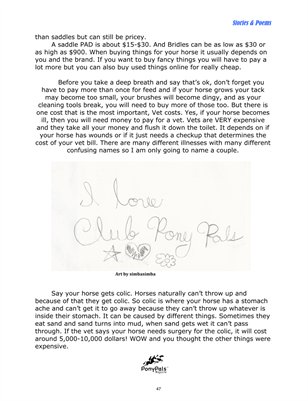 Stories & Poems
than saddles but can still be pricey.
A saddle PAD is about $15-$30. And Bridles can be as low as $30 or
as high as $900. When buying things for your horse it usually depends on
you and the brand. If you want to buy fancy things you will have to pay a
lot more but you can also buy used things online for really cheap.
Before you take a deep breath and say that's ok, don't forget you
have to pay more than once for feed and if your horse grows your tack
may become too small, your brushes will become dingy, and as your
cleaning tools break, you will need to buy more of those too. But there is
one cost that is the most important, Vet costs. Yes, if your horse becomes
ill, then you will need money to pay for a vet. Vets are VERY expensive
and they take all your money and flush it down the toilet. It depends on if
your horse has wounds or if it just needs a checkup that determines the
cost of your vet bill. There are many different illnesses with many different
confusing names so I am only going to name a couple.
I love
Club Pony Pals
Art by simbasimba
Say your horse gets colic. Horses naturally can't throw up and
because of that they get colic. So colic is where your horse has a stomach
ache and can't get it to go away because they can't throw up whatever is
inside their stomach. It can be caused by different things. Sometimes they
eat sand and sand turns into mud, when sand gets wet it can't pass
through. If the vet says your horse needs surgery for the colic, it will cost
around 5,000-10,000 dollars! WOW and you thought the other things were
expensive.
PonyPals
47